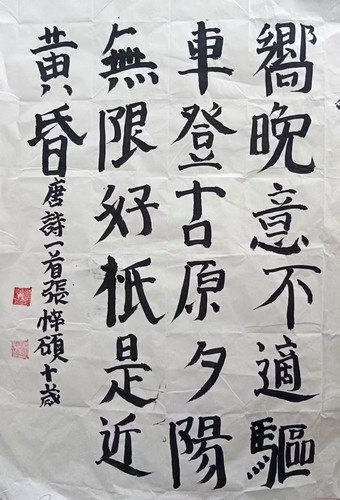 嚮晚意不適驅
車登古原夕陽
無限好祇是近
黃昏
唐詩一首張悻碩十歲